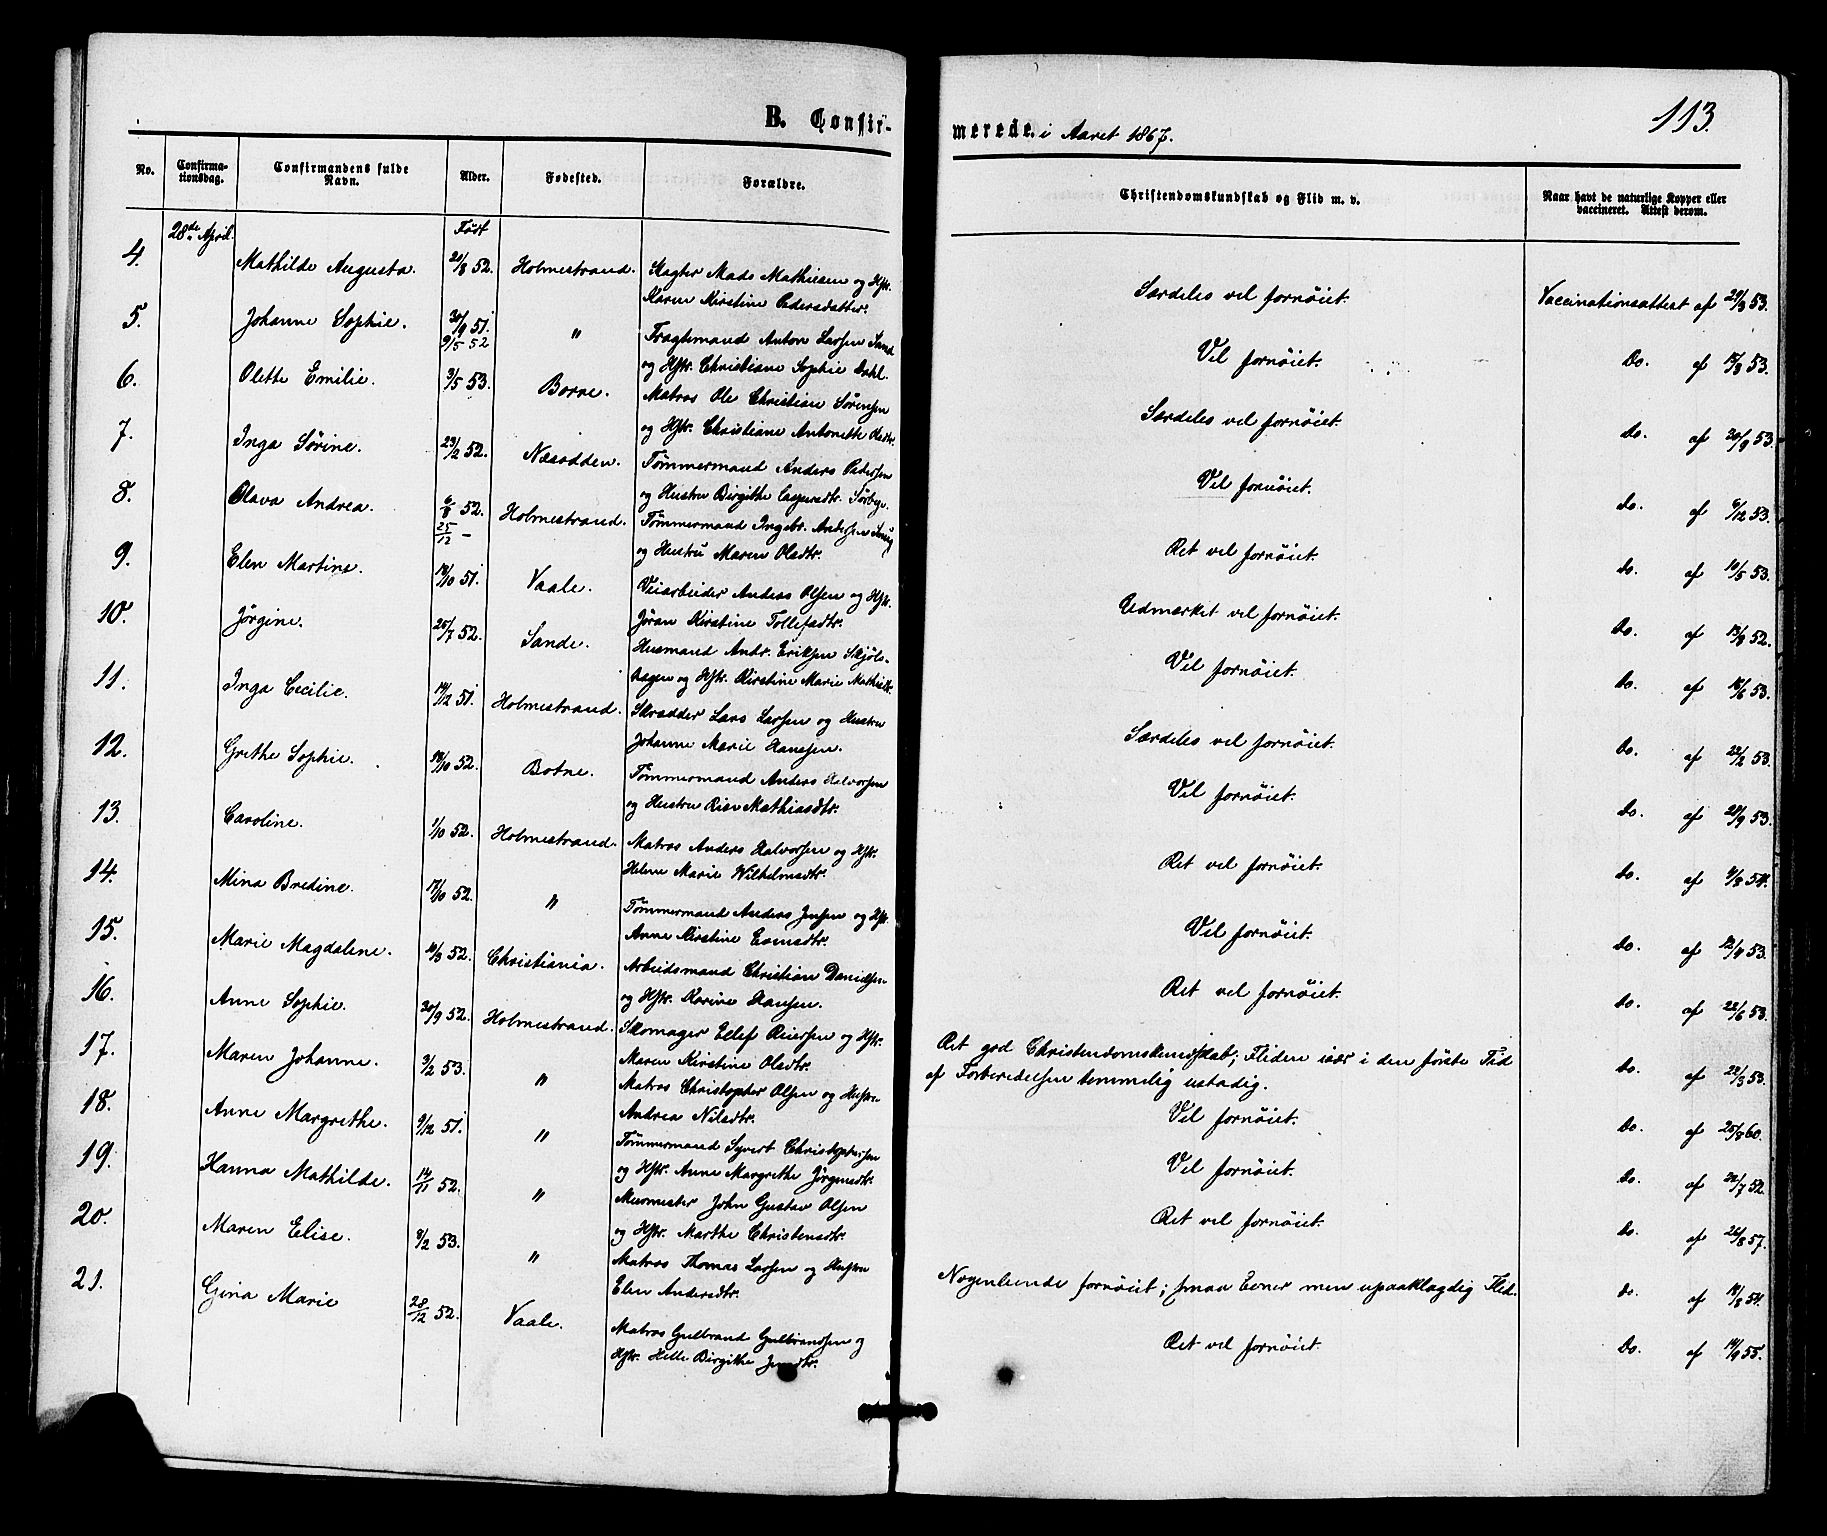 113.
B. Confir-
merede i Aaret 1867.
No.
Confirma-
tionsdag.
Confirmandens fulde
Navn.
Alder.
Fødested.
Forældre.
Christendomskundskab og Flid m. v.
Naar havt de naturlige Kopper eller
vaccineret. Attest derom.
28de April. Født
4. Mathilde Augusta. 21/8 52. Holmestrand. Slagter Mads Mathisen og Hstr.
Karen Kirstine Pedersdatter.
Særdeles vel fornøiet. Vaccinationsattest af 29/3 53.
5. Johanne Sophie. 30/9 51. " Fragtemand Anton Larsen Sand
9/5 52 og Hstr. Christiane Sophie Dahl.
Vel fornøiet. Do. af 15/8 53.
6. Olette Emilie. 3/5 53. Borre. Matros Ole Christian Sørensen
og Hstr. Christiane Antonette Olsdtr.
Særdeles vel fornøiet. Do. af 20/9 53.
7. Inga Sørine. 23/2 52. Næsodden. Tømmermand Anders Pedersen
og Hustru Birgithe Caspersdtr. Sørbye.
Vel fornøiet. Do. af 6/12 53.
8. Olava Andrea. 6/8 52. Holmestrand. Tømmermand Ingebr. Andersen
25/12 - og Hustru Maren Olsdtr.
Ret vel fornøiet. Do. af 10/5 53.
9. Elen Martine. 18/10 51. Vaale. Veiarbeider Anders Olsen og Hstr.
Jøran Kirstine Tollefsdtr.
Udmærket vel fornøiet. Do. af 13/9 52.
10. Jørgine. 25/7 52. Sande. Husmand Andr. Eriksen Skjøls-
hagen og Hstr. Kirstine Marie Mathisdtr.
Vel fornøiet. Do. af 16/6 53.
11. Inga Cecilie. 14/12 51. Holmestrand. Skrædder Lars Larsen og Hustru
Johanne Marie Hanssen.
Særdeles vel fornøiet. Do. af 22/2 53.
12. Grethe Sophie. 18/10 52. Botne. Tømmermand Anders Halvorsen
og Hustru Risn Mathiasdtr.
Vel fornøiet. Do. af 28/9 53.
13. Caroline. 1/10 52. Holmestrand. Matros Anders Halvorsen og Hstr.
Helene Marie Wilhelmsdtr.
Ret vel fornøiet. Do. af 9/8 54.
14. Mina Bredine. 17/10 52. " Tømmermand Anders Jensen og Hstr.
Anne Kirstine Evensdtr.
Vel fornøiet. Do. af 12/4 53.
15. Marie Magdalene. 10/3 52. Christiania. Arbeidsmand Christian Danielsen
og Hstr. Karine Hansen.
Ret vel fornøiet. Do. af 22/6 53.
16. Anne Sophie. 30/9 52. Holmestrand. Skomager Ellef Reiersen og Hstr.
Maren Kirstine Olsdtr.
Ret god Christendomskundskab; Fliden især i den første Tid
af Forberedelsen temmelig ustadig. Do. af 22/3 53.
17. Maren Johanne. 3/2 53. " Matros Christopher Olsen og Hustru
Andrea Nilsdtr.
Vel fornøiet. Do. af 25/8 60.
18. Anne Margrethe. 9/12 51. " Tømmermand Syvert Christophersen
og Hstr. Anne Margrethe Jørgensdtr.
Vel fornøiet. Do. af 22/7 52.
19. Hanna Mathilde. 14/11 52. " Murmester John Gustav Olsen
og Hstr. Marthe Christensdtr.
Ret vel fornøiet. Do. af 26/8 57.
20. Maren Elise. 8/2 53. " Matros Thomas Larsen og Hustru
Elen Andersdtr.
Nogenlunde fornøiet; smaa Evner men upaaklagelig Flid. Do. af 19/8 54.
21. Gina Marie 28/12 52. Vaale. Matros Gulbrand Gulbrandsen og
Hstr. Helle Birgithe Jensdtr.
Ret vel fornøiet. Do. af 14/9 55.